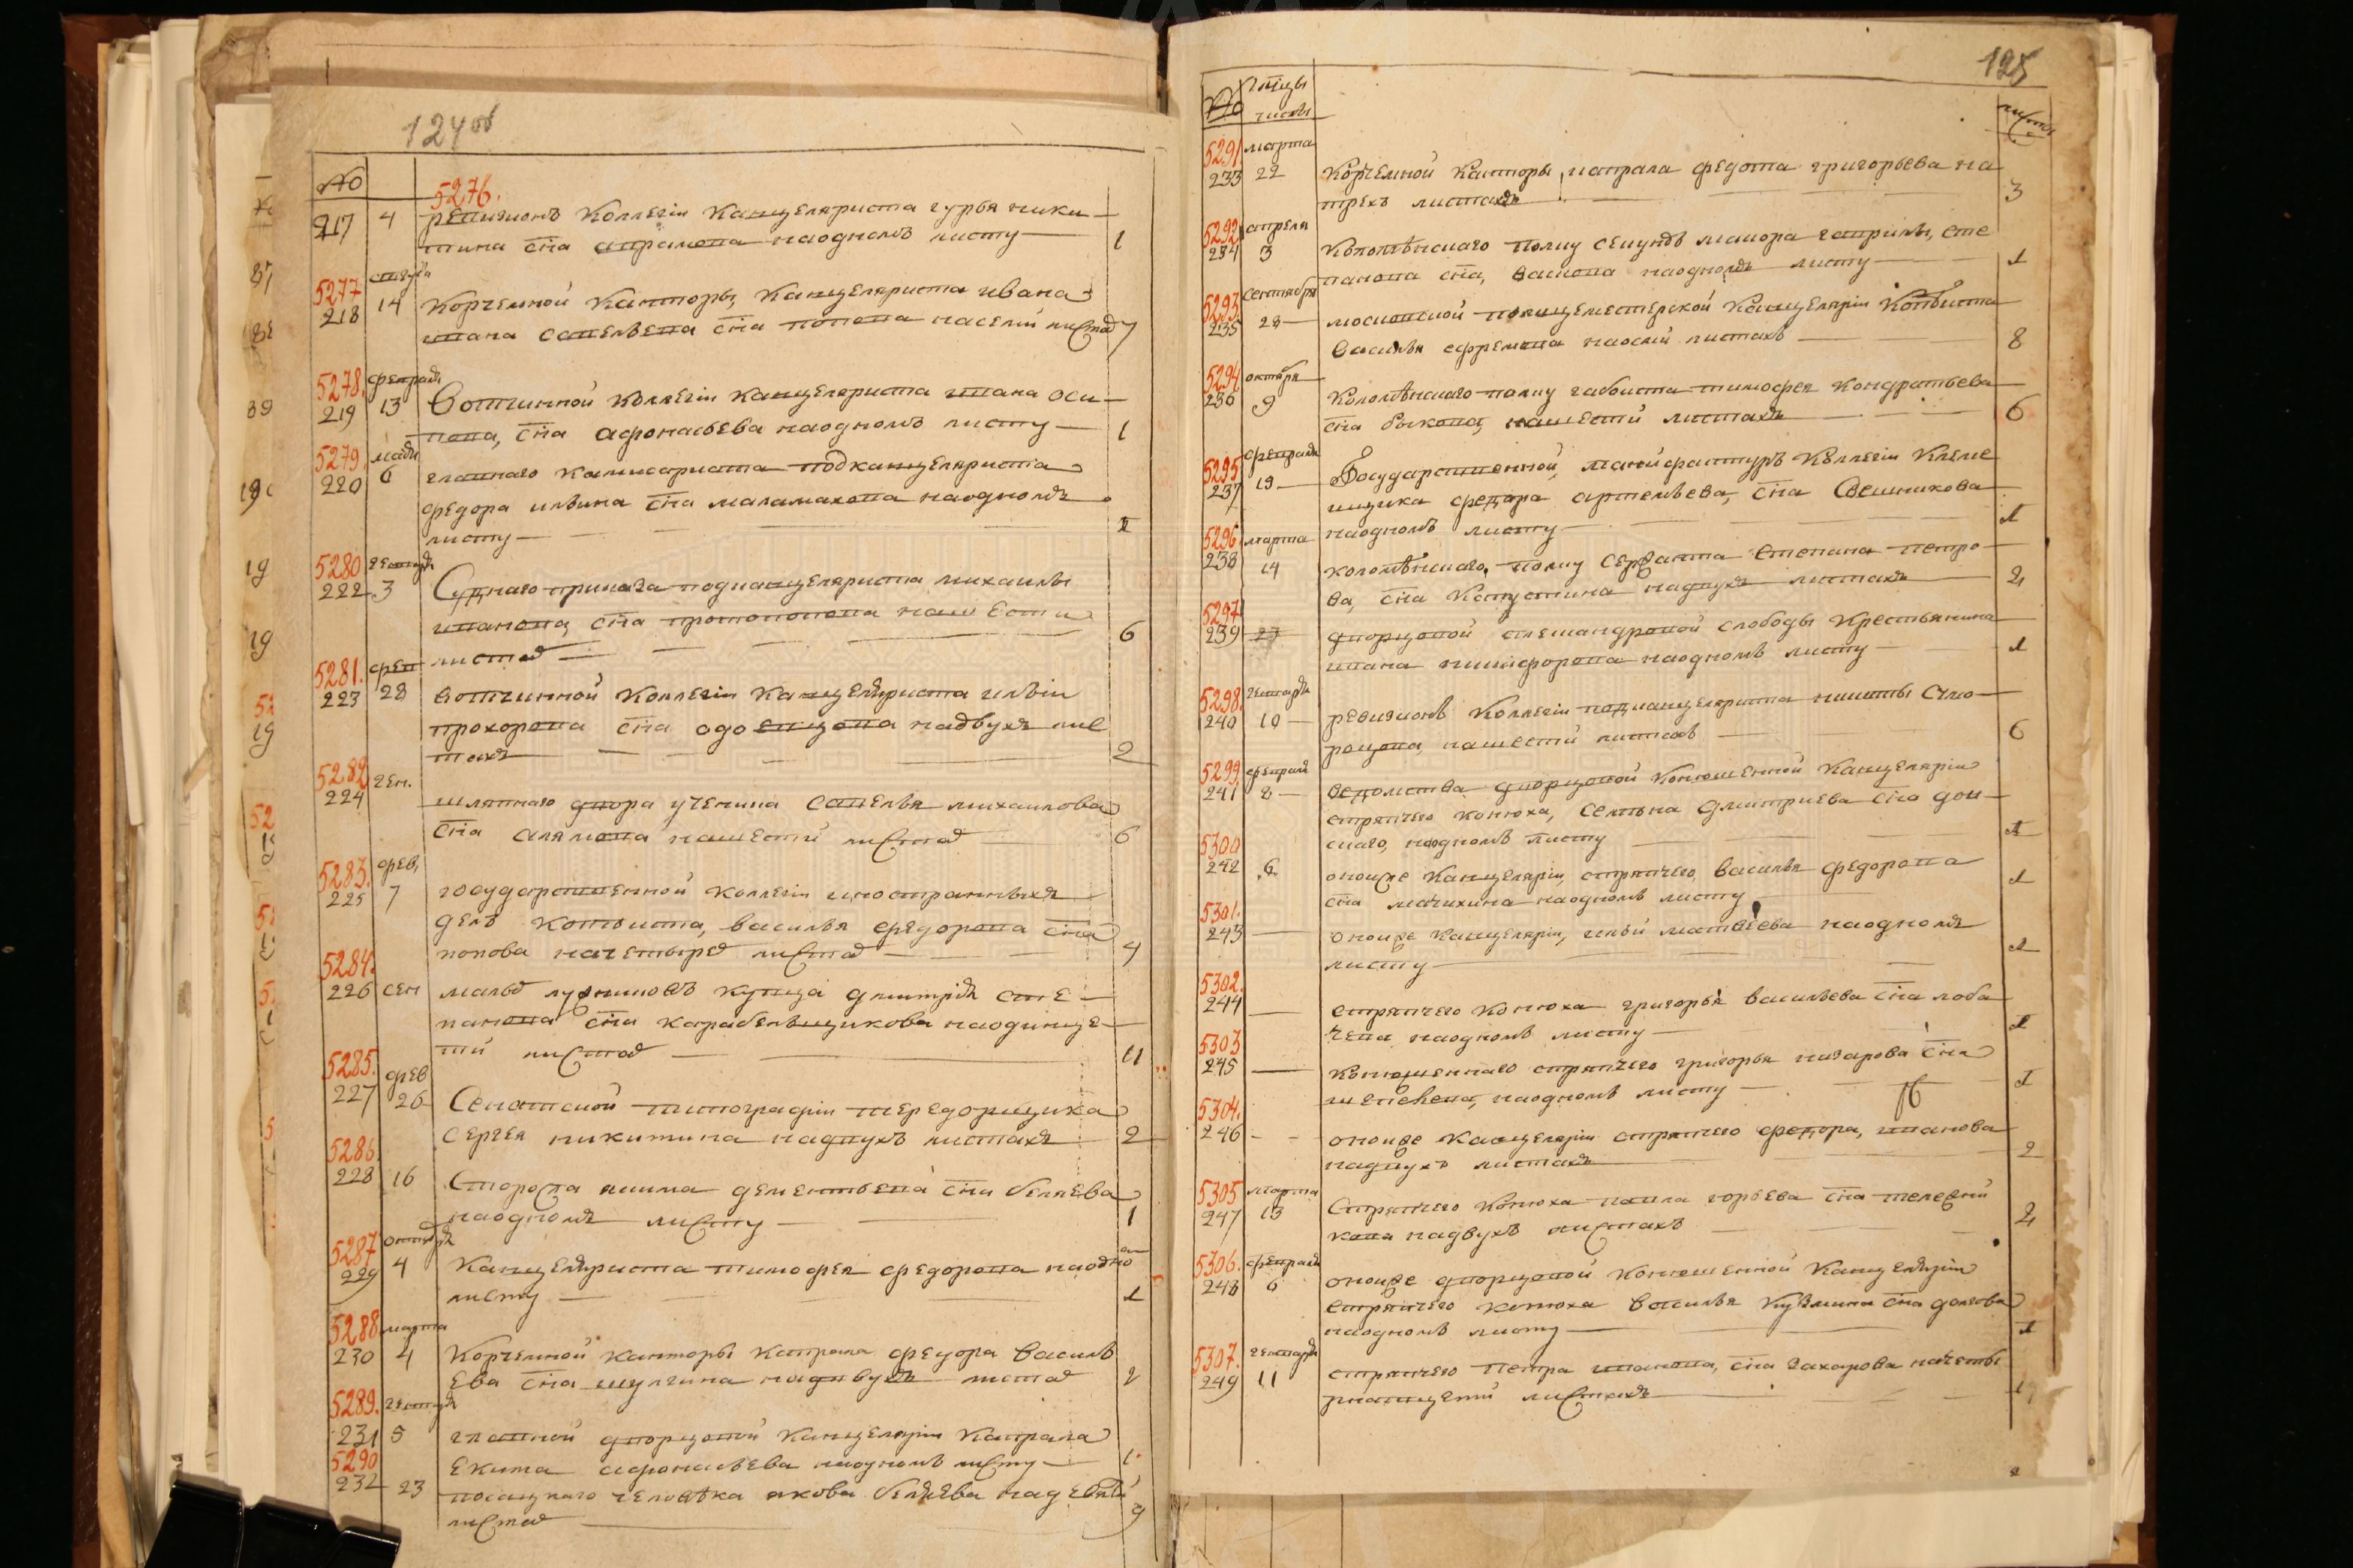 124 об
№
5276.
217 4 ревизионъ коллегіи канцеляриста гурья ники
тина сна аврамова наодномъ листу 1
5277
218 14 корчемной канторы, канцеляриста ивана
савельева сна попова насеми листах 7
5278. феврал
219 13 Вотчинной коллегіи канцеляриста ивана оси
пова, сна афонасьева наодномъ листу 1
5279.
220 6 главнаго камисариата подканцеляриста
федора ильина сна маламахова наодномъ
листу 1
5280 генвар
222 3 Суднаго приказа подканцеляриста михаилы
иванова, сна протопопова нашести
листах 6
5281. фев
223 28 вотчинной коллегіи канцеляриста ильи
прохорова сна одоевцова надвухъ лис
тахъ 2
5282 ген.
224 шляпнаго двора ученика савелья михаилова
сна нашести листах 6
5283. фев,
225 7 государственной коллегіи иностранныхъ
делъ копеиста, василья федорова сна
попова начетыре листах 4
5284.
226 сен купца дмитрія сте
панова сна карабельщикова наодинце
ти листах 11
5285. фев
227 26 Сенатской типографіи тередорщика
сергея никитина надвухъ листахъ 2
5286.
228 16 Сторожа якима дементьева сна беляева
наодномъ листу 1
5287 октяб
229 4 Канцеляриста тимофея федорова наодно
листу 1
5288. марта
230 4 Корчемной канторы капрала федора василь
ева сна шулгина надвухъ листах 2
5289. генвар
231 5 главной дворцовой канцеляріи капрала
екима афонасьева наодномъ листу 1
5290
232 23 посацкаго человѣка якова беляева надевяти
листах 9
125
№ мцы
числы
листы
5291. марта
233 22 Корчемной канторы капрала федота григорьева на
трехъ листахъ 3
5292 апреля
234 3 Коломѣнскаго полку секундъ маиора гаврилы, сте
панова сна, наодномъ листу 1
5293. сентября
235 28 московской полицеместерской канцеляріи копеиста
василья ефремова наосми листахъ 8
5294 октября
236 9 Коломѣнскаго полку габоиста тимофея кондратьева
сна быкова, нашести листахъ 6
5295 февраля
237 19 Государственной, мануфактуръ коллегіи клеме
щика федора артемьева, сна Свешникова
наодномъ листу 1
5296 марта
238 14 коломѣнскаго, полку сержанта степана петро
ва, сна капустина надвухъ листахъ 2
5297
239 27 дворцовой слободы крестьянина
ивана никифорова наодномъ листу 1
5298. генваря
240 10 ревизионъ коллегіи подканцеляриста никиты
нашести листахъ 6
5299. феврал
241 8 ведомства дворцовой конюшенной канцеляріи
стряпчего конюха, дмитриева сна дон
скаго, наодномъ листу 1
5300
242 6 оноиже канцеляріи, стряпчего, василья федорова
сна наодномъ листу 1
5301.
243 оноиже канцеляріи, ильи матвеева наодномъ
листу 1
5302.
244 стряпчего конюха григорья васильева сна лоба
чева наодномъ листу 1
5303
245 конюшеннаго стряпчего григорья назарова сна
наодномъ листу 1
5304.
246 оноиже канцеляріи стряпчего федора, иванова
надвухъ листахъ 2
5305 марта
247 13 Стряпчего конюха павла сна
кова надвухъ листахъ 2
5306. февраля
248 6 оноиже дворцовой конюшенной канцеляріи
стряпчего конюха василья кузмина сна долгова
наодномъ листу 1
5307. генваря
249 11 стряпчего петра иванова, сна захарова начеты
рнатцети листахъ